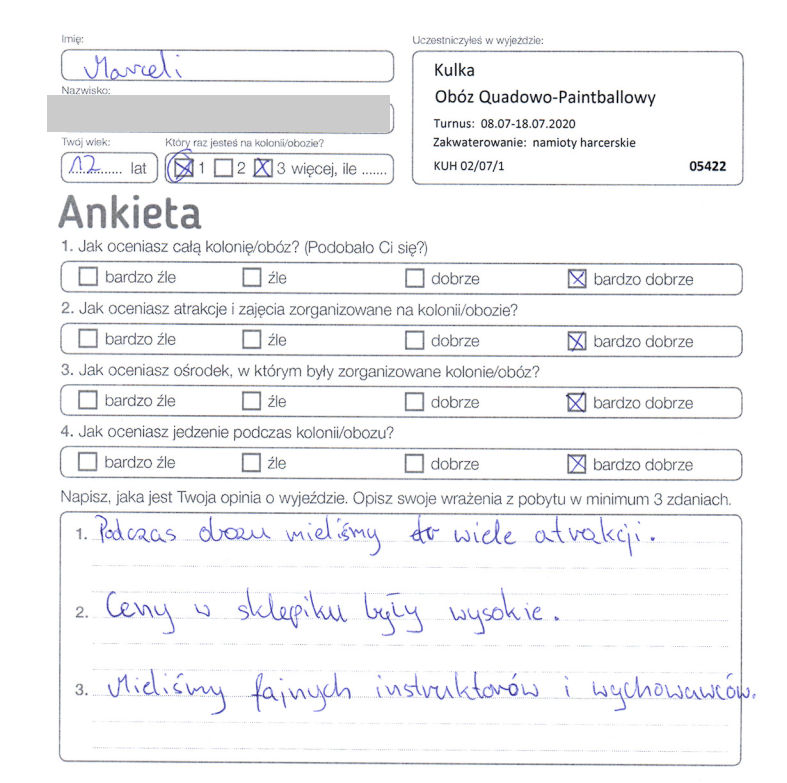 Imię:
Uczestniczyłeś w wyjeździe:
Marceli
Kulka
Nazwisko:
Obóz Quadowo-Paintballowy
Turnus: 08.07-18.07.2020
Twój wiek:
Który raz jesteś na kolonii/obozie?
Zakwaterowanie: namioty harcerskie
12 lat
1 2 3 więcej, ile .......
KUH 02/07/1
05422
Ankieta
1. Jak oceniasz całą kolonię/obóz? (Podobało Ci się?)
bardzo źle źle dobrze bardzo dobrze
2. Jak oceniasz atrakcje i zajęcia zorganizowane na kolonii/obozie?
bardzo źle źle dobrze bardzo dobrze
3. Jak oceniasz ośrodek, w którym były zorganizowane kolonie/obóz?
bardzo źle źle dobrze bardzo dobrze
4. Jak oceniasz jedzenie podczas kolonii/obozu?
bardzo źle źle dobrze bardzo dobrze
Napisz, jaka jest Twoja opinia o wyjeździe. Opisz swoje wrażenia z pobytu w minimum 3 zdaniach.
1. Podczas obozu mieliśmy wiele atrakcji.
2. Ceny w sklepiku były wysokie.
3. Mieliśmy fajnych instruktorów i wychowawców.